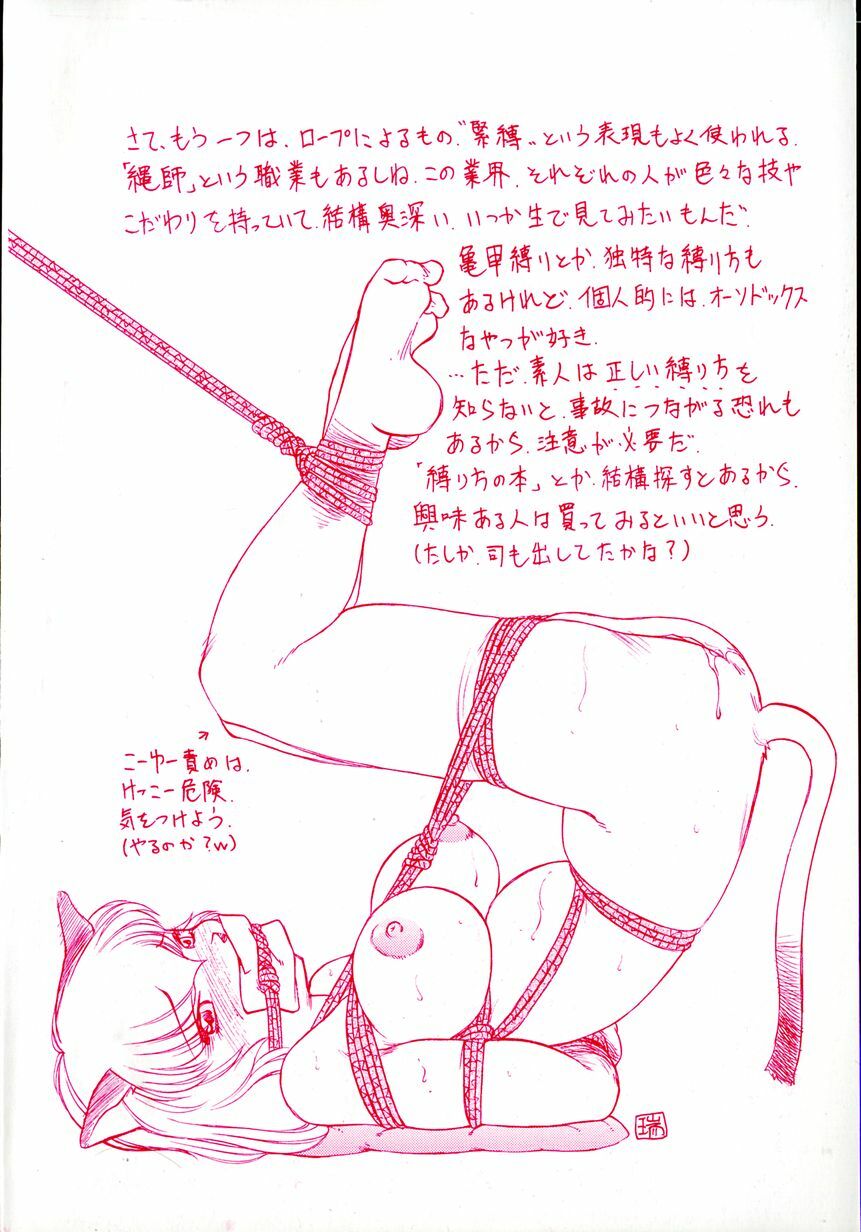 さて、もう一つは、ロープによるもの。“緊縛„という表現もよく使われる。
「縄師」という職業もあるしね。この業界、それぞれの人が色々な技や
こだわりを持っていて、結構奥深い。いつか生で見てみたいもんだ。
亀甲縛りとか、独特な縛り方も
あるけれど、個人的には、オーソドックス
なやつが好き。
…ただ、素人は正しい縛り方を
知らないと、事故につながる恐れも
あるから、注意が必要だ。
「縛り方の本」とか、結構探すとあるから、
興味ある人は買ってみるといいと思う。
(たしか、司も出してたかな?)
こーゆー責めは、
けっこー危険。
気をつけよう。
(やるのか?w)
瑞